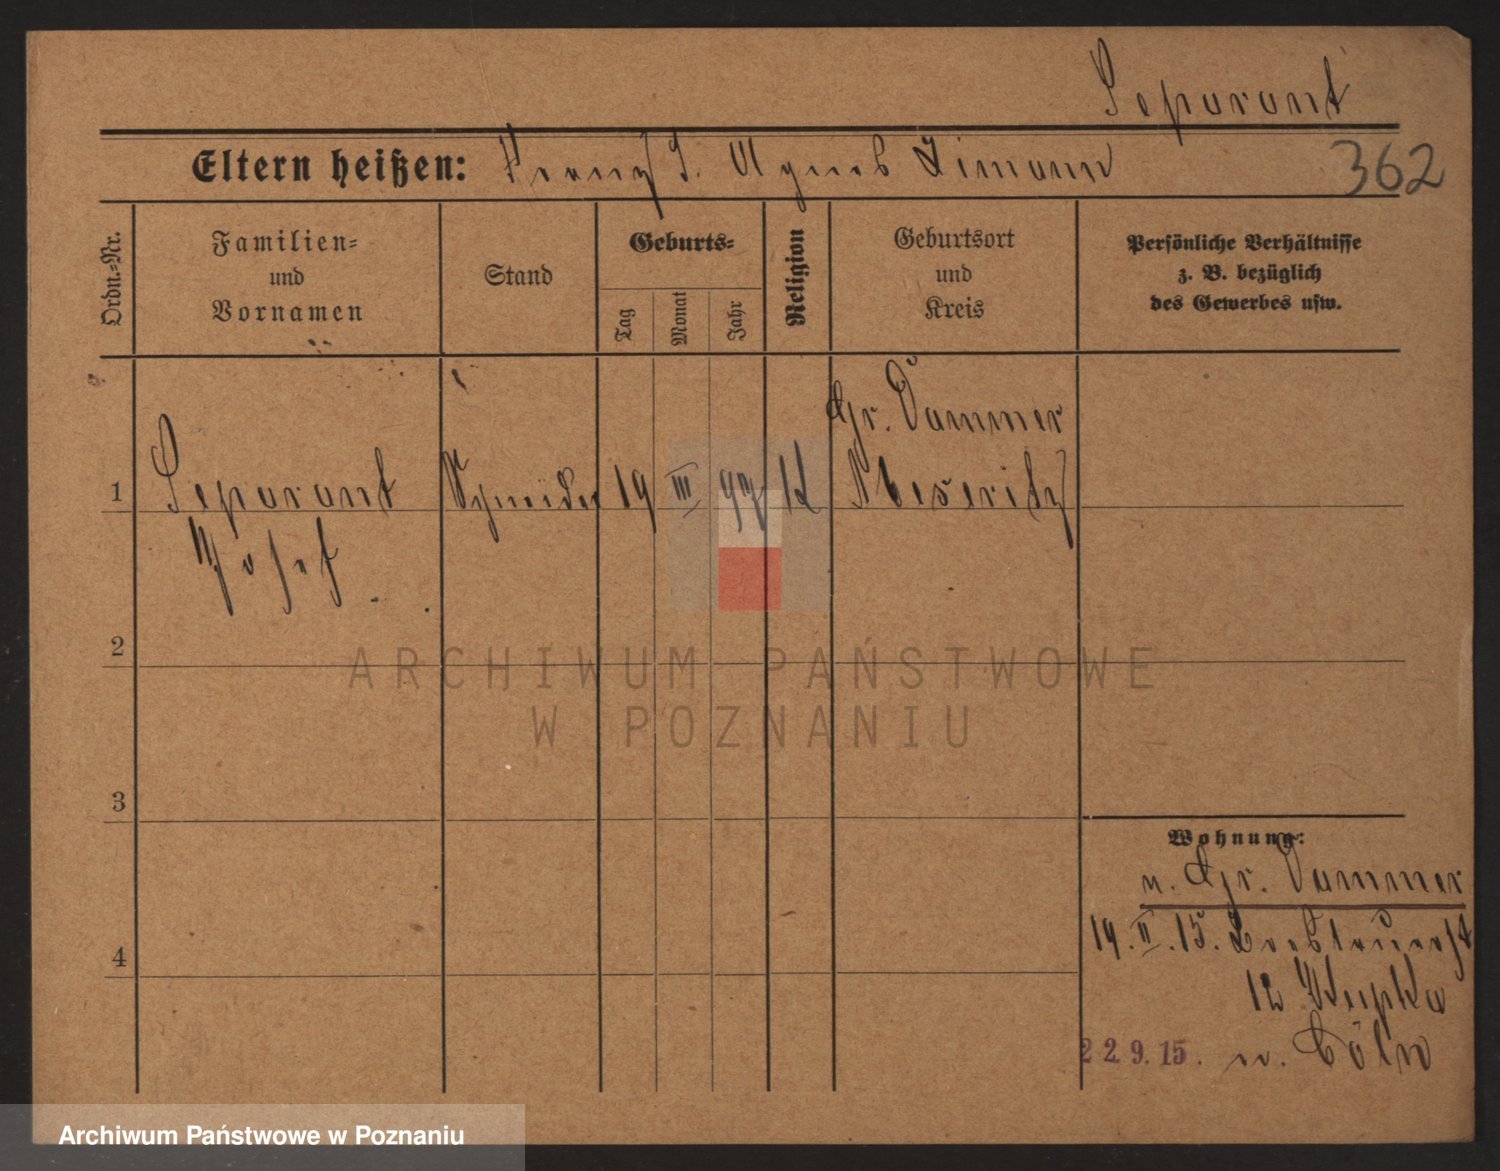 Separant
Eltern heißen: Franz S. Agnes Zimann
362
Ordn.-Nr.
Familien-
und
Vornamen
Stand
Geburts-
Tag
Monat
Jahr
Religion
Geburtsort
und
Kreis
Persönliche Verhältnisse
z. B. bezüglich
des Gewerbes usw.
Gr. Dammer
1 Separant Schneider 19 III 97 K Meseritz
Josef
2
3
4
Wohnung:
v. Gr. Dammer
19. II. 15.
12
22.9.15. n. Cöln
ARCHIWUM PAŃSTWOWE
W POZNANIU
Archiwum Państwowe w Poznaniu